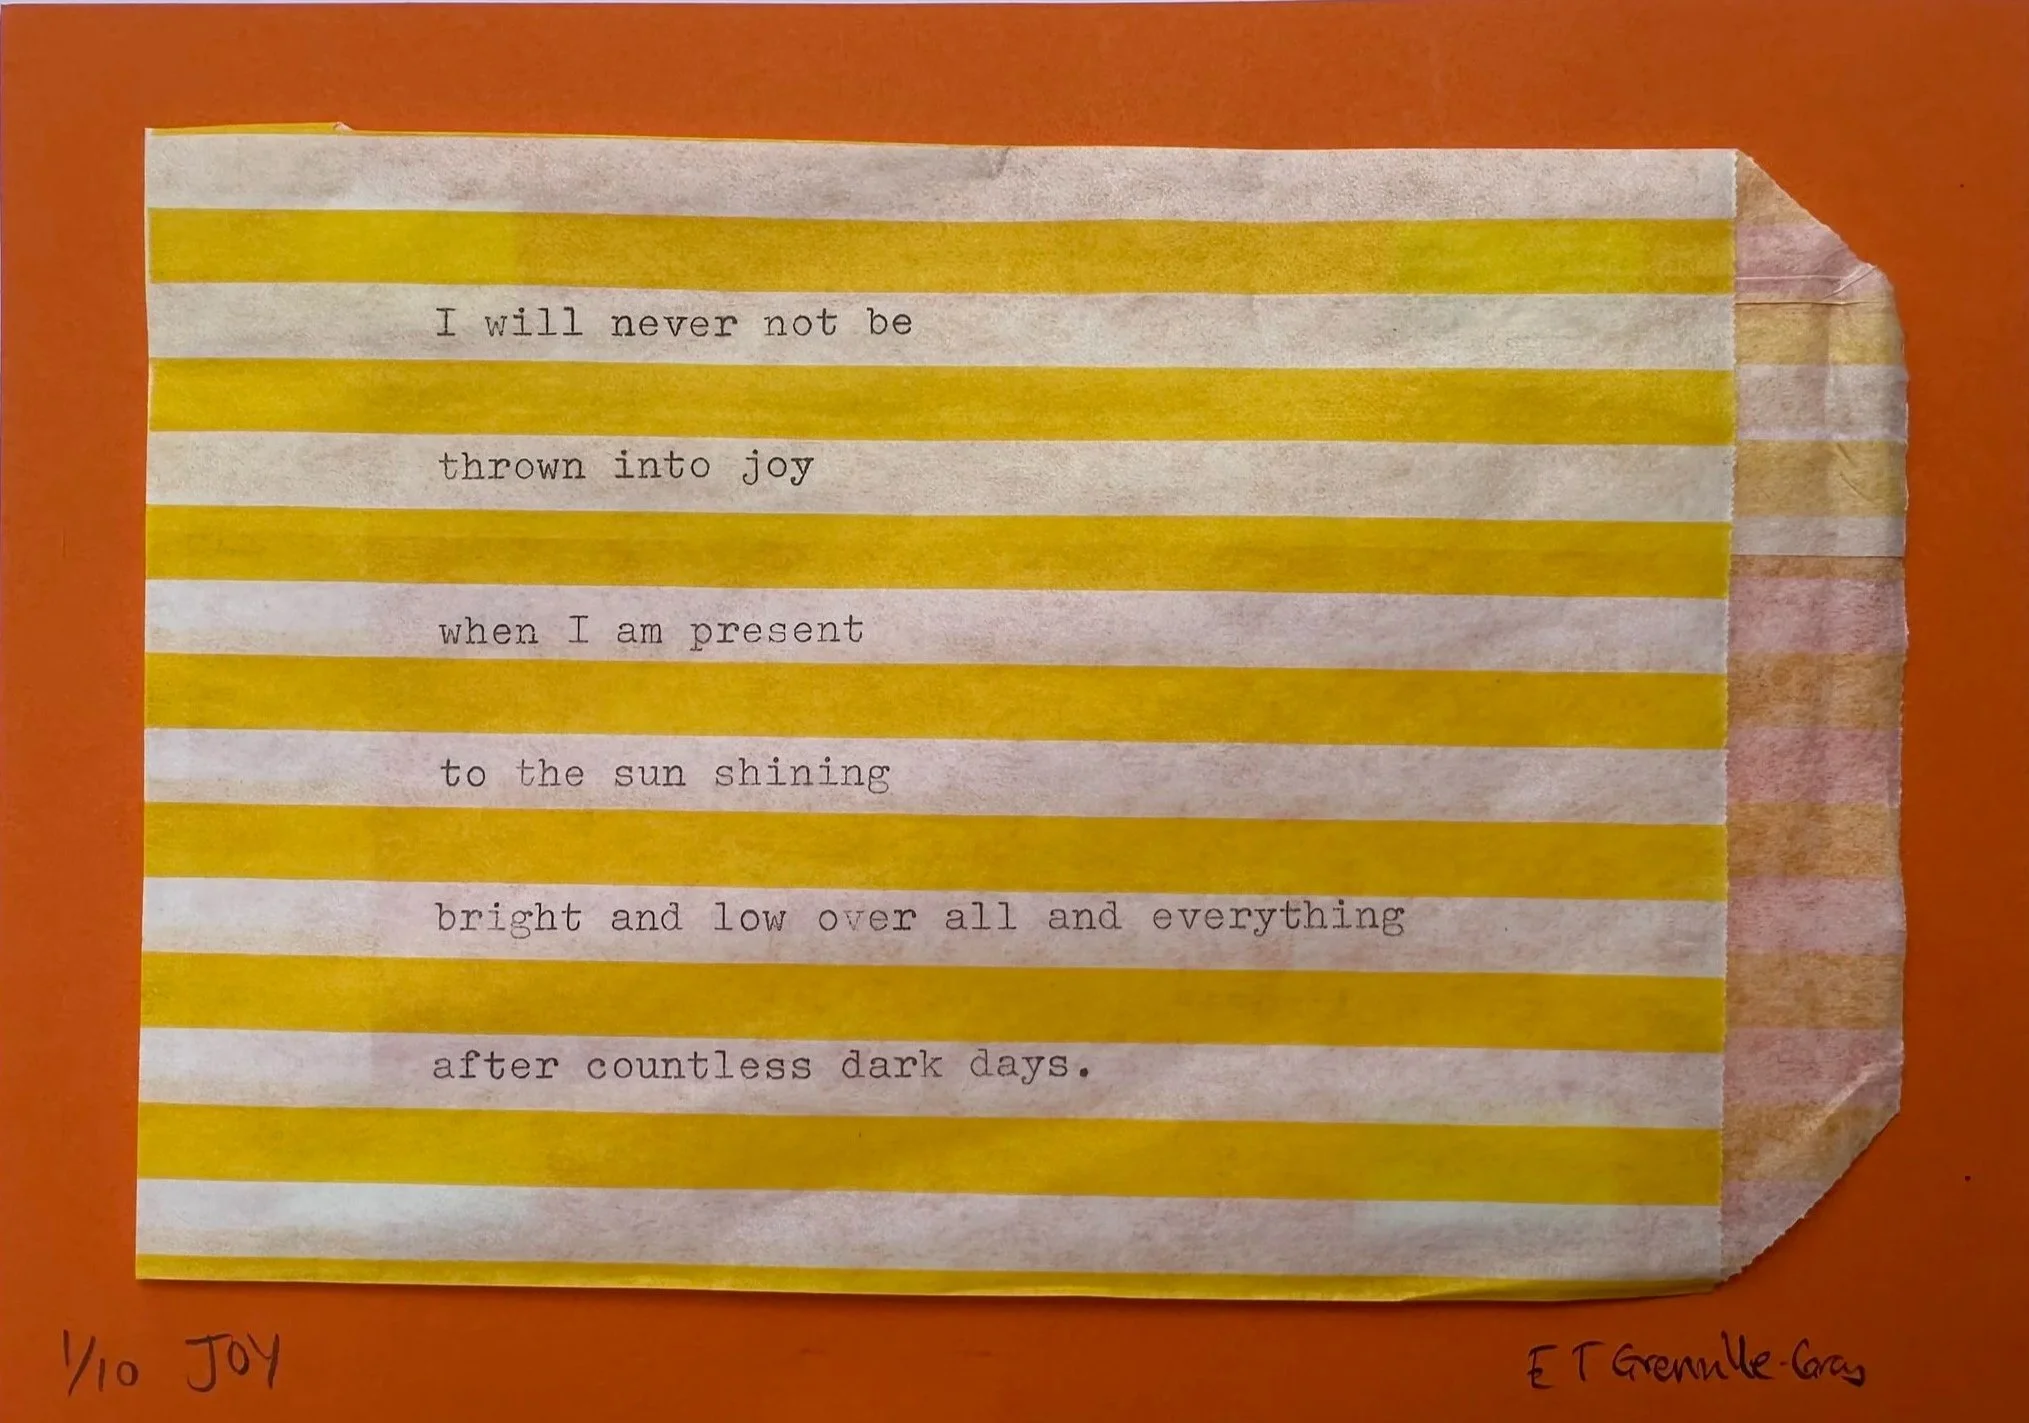 I will never not be
thrown into joy
when I am present
to the sun shining
bright and low over all and everything
after countless dark days.
1/10 JOY
E T Grenville-Gray